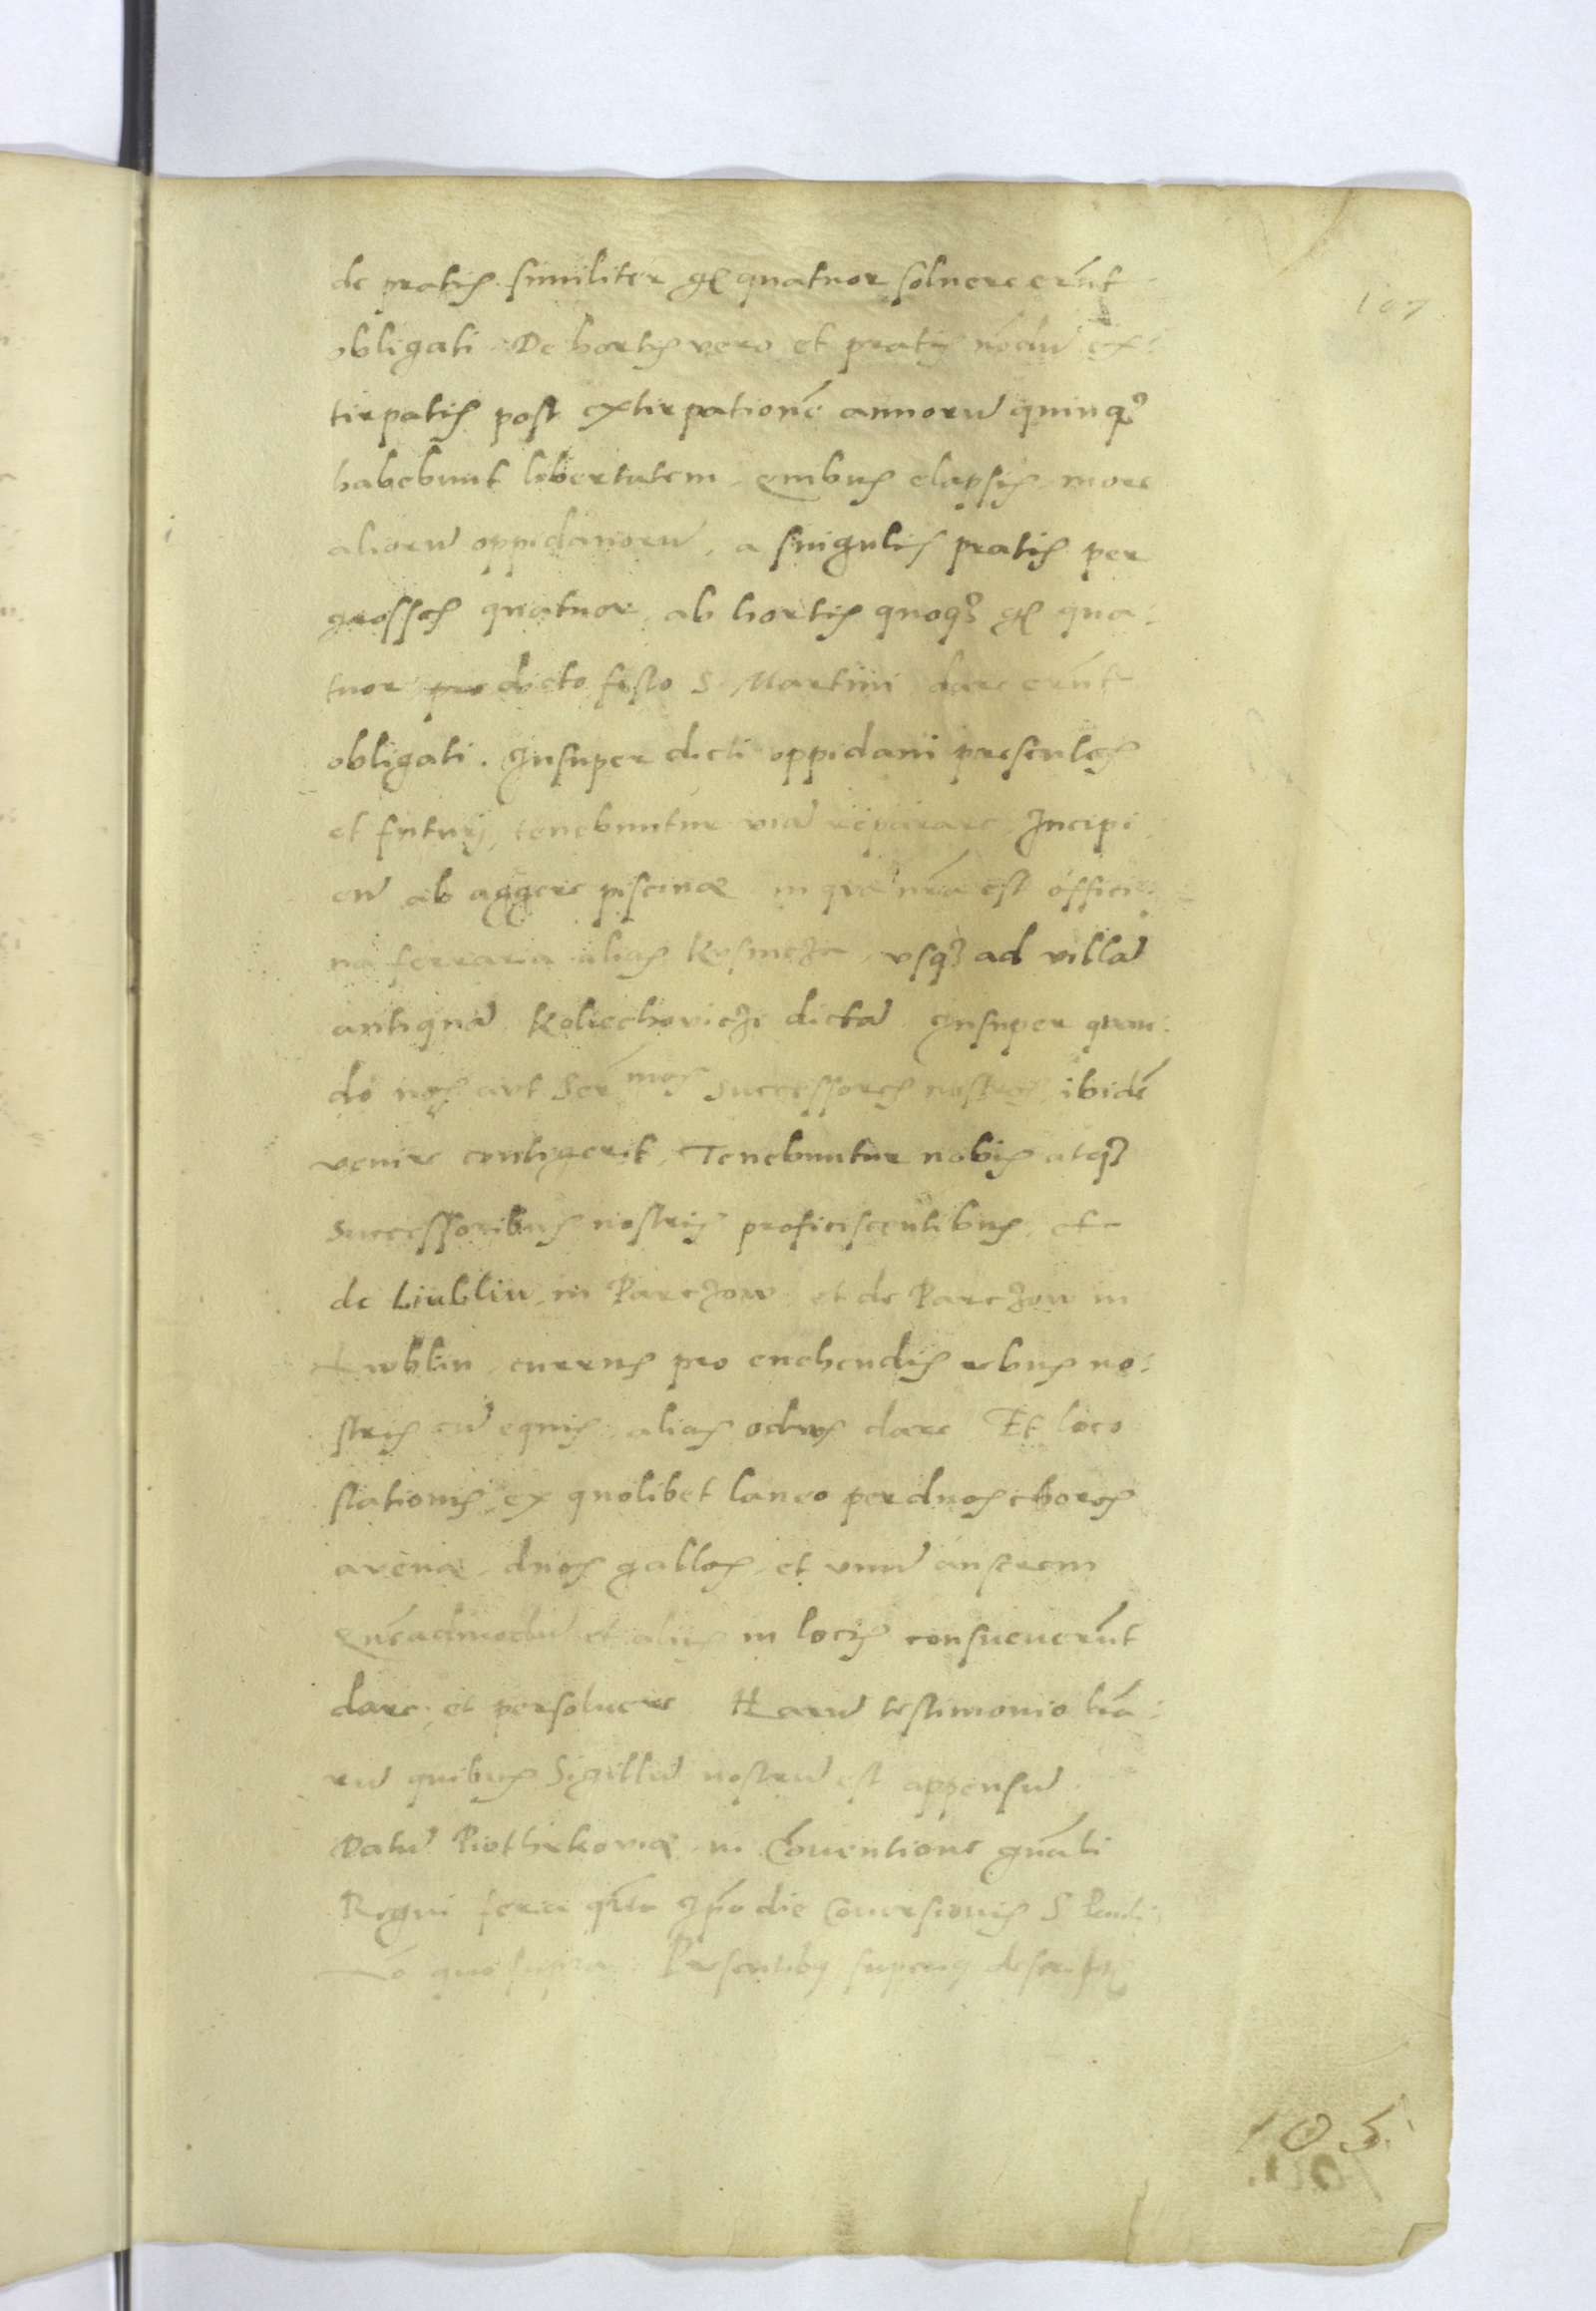 107
de pratis similiter gr quatuor soluere erũt
obligati. De hortis vero et pratis nõdũ ex:
tirpatis post extirpationẽ annorũ quinq3
habebunt libertatem, quibus elapsis more
aliorũ oppidanorũ, a singulis pratis per
grossos quatuor, ab hortis quoq3 gr qua:
tuor pro dicto festo S. Martini dare erũt
obligati. Insuper dicti oppidani presentes
et futurj, tenebuntur viã reparare Incipi:
en̄ ab aggere piscinæ in qua nr̃a est offici:
na ferraria alias Kusnicza, vsq3 ad villã
antiquã Koliechovicze dictã Insuper quan:
do nos aut Ser^mos Successores nostros ibidẽ
venire contigerit, Tenebuntur nobis atq3
successoribus nostris proficiscentibus etc
de Liublin in Parczow et de Parczow in
Lwblin, currus pro euehendis rebus no:
stris cũ equis, alias odwos dare Et loco
stationis, ex quolibet laneo per duos choros
avenæ, duos gallos, et vnũ anserem
Quẽadmodũ et aliis in locis consueuerũt
dare, et persoluere Harũ testimonio lrã:
rũ quibus Sigillũ nostrũ est appensũ.
Datũ Piothrkoviæ in Cõuentione gñali
Regni feria qũta Ip̃o die Conuersionis S Pauli
A~o quo supra. Presentibȝ superiȝ descriptȝ
105.